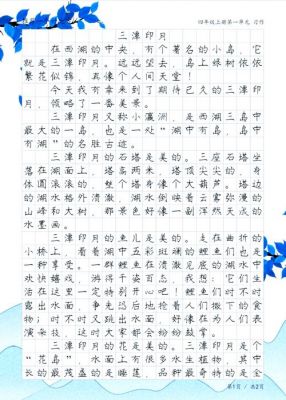 四年级上册第一单元 习作
三潭印月
在西湖的中央，有个著名的小岛，它
就是三潭印月。远远望去，岛上绿树依依
繁花似锦，真像个人间天堂！
今天我有幸来到了期待已久的三潭印
月，领略了一番美景。
三潭印月又称小瀛洲，是西湖三岛中
最大的一岛，也是一处“湖中有岛，岛中
有湖”的名胜古迹。
三潭印月的石塔是美的。三座石塔坐
落在湖面上，塔高两米，塔顶尖尖的，身
体圆滚滚的，整个塔身像个大葫芦。塔边
的湖水格外清澈，湖水倒映着云雾弥漫的
山峰和大树，那景色好像一副浑然天成的
水墨画。
三潭印月的鱼儿是美的。走在曲折的
小桥上，看着湖中五彩斑斓的鲤鱼们也是
一种享受。一群鲤鱼在清澈见底的湖水中
欢快嬉戏，游得十分自在，我想：它们生
活在这里一定特别开心吧！鲤鱼们时不时
露出水面，争先恐后地抢着人们撒下的食
物；时不时又跳出水面，好像在为人们表
演杂技，这时大家都会纷纷鼓掌。
三潭印月的花是美的。三潭印月是个
“花岛”，水面上有很多水生植物，其中
长的最茂盛的是睡莲，品种最奇特的是金
第1页 / 共2页